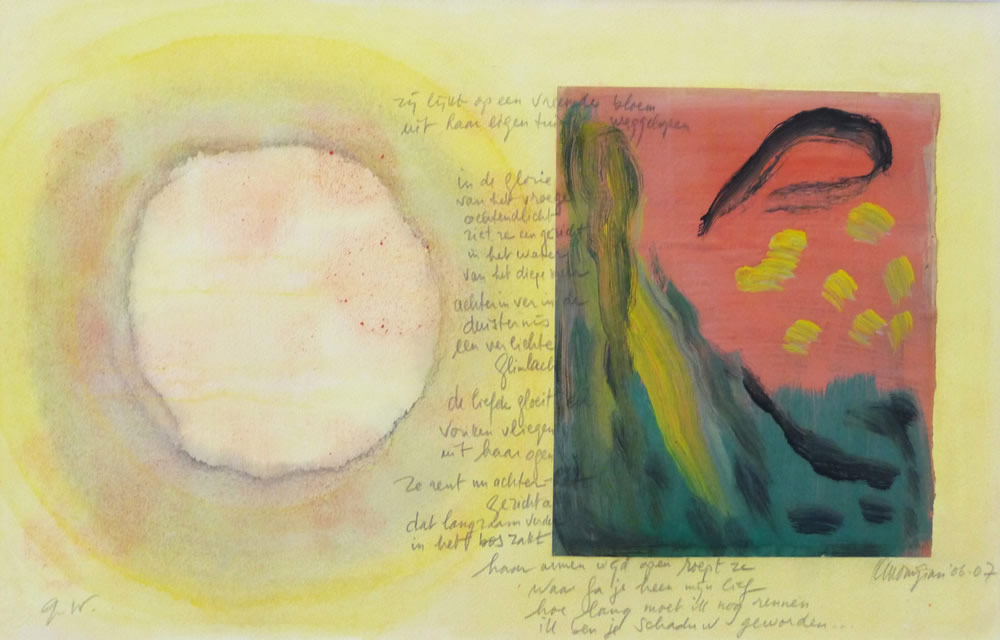 zij lijkt op een vreemde bloem
uit haar eigen tuin weggelopen
in de glorie
van het vroege
ochtendlicht
ziet ze een gezicht
in het water
van het diepe meer
achterin ver in de
duisternis
een verlichte
glimlach
de liefde gloeit en
vonken vliegen
uit haar ogen
ze rent nu achter het
gezicht a
dat langzaam verder
in het bos zakt
haar armen wijd open roept ze
waar ga je heen mijn lief
hoe lang moet ik nog rennen
ik ben je schaduw geworden...
g.W.
'06-07